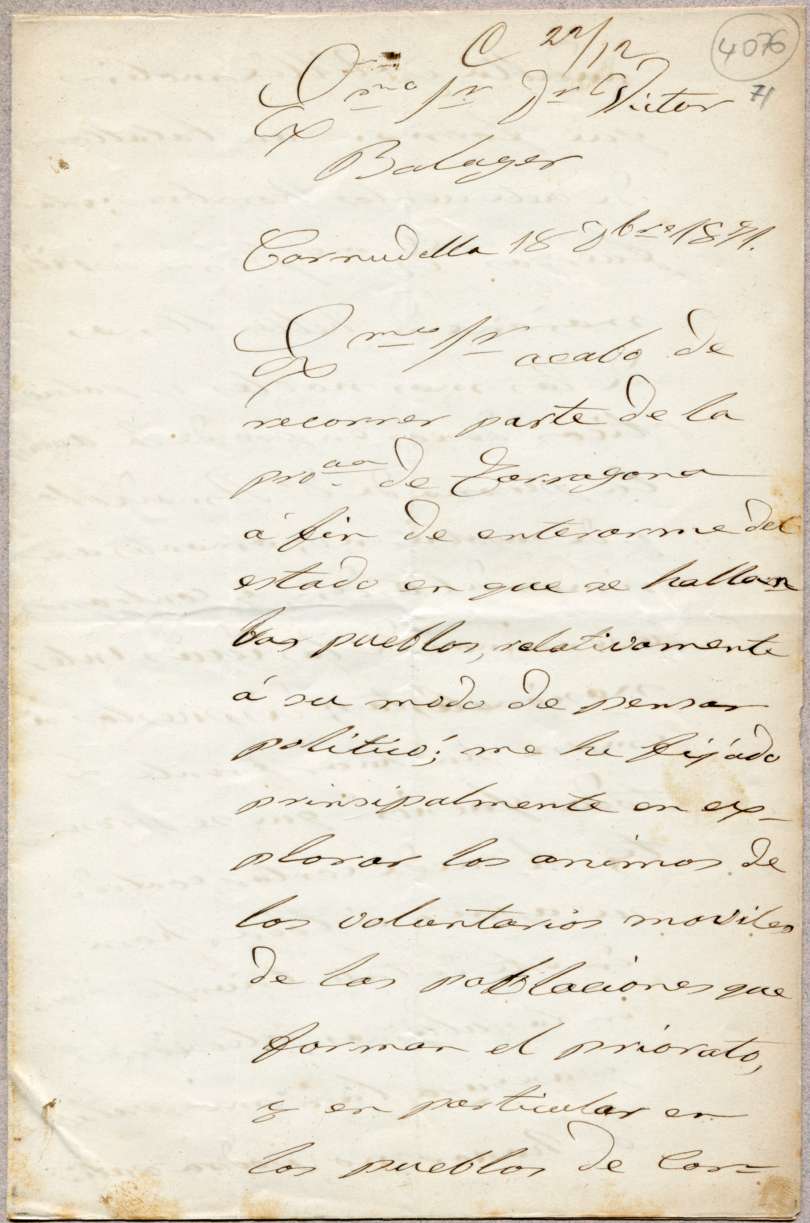 C 22/12
4076
71
Exmo Sr Dn Victor
Balager
Cornudella 18 Dbre 1871.
Exmo Sr acabo de
recorrer parte de la
proaa de Terragona
á fin de enterarme del
estado en que se hallan
los pueblos, relativamente
á su modo de pensar
político; me he fijado
prinsipalmente en ex-
plorar los animos de
los voluntarios moviles
de las poblaciones que
forman el príorato,
y en particular en
los pueblos de Cor-